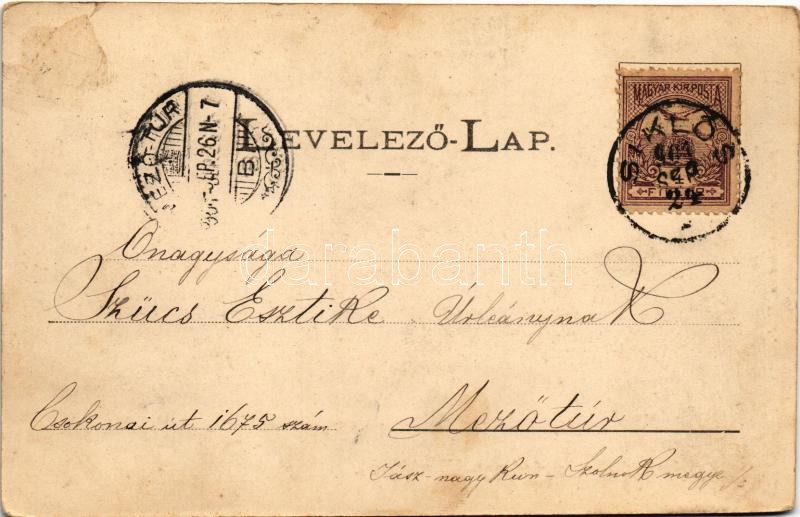 MEZŐ-TÚR
SEP. 26 N 7
B
LEVELEZŐ-LAP.
MAGYAR KIR. POSTA
SIKLÓS
904
SEP
24
darabanth
Őnagysága
Szücs Esztike Úrleánynak
Csokonai út 1675 szám
Mezőtúr
Jász-nagy Kun-Szolnok megye